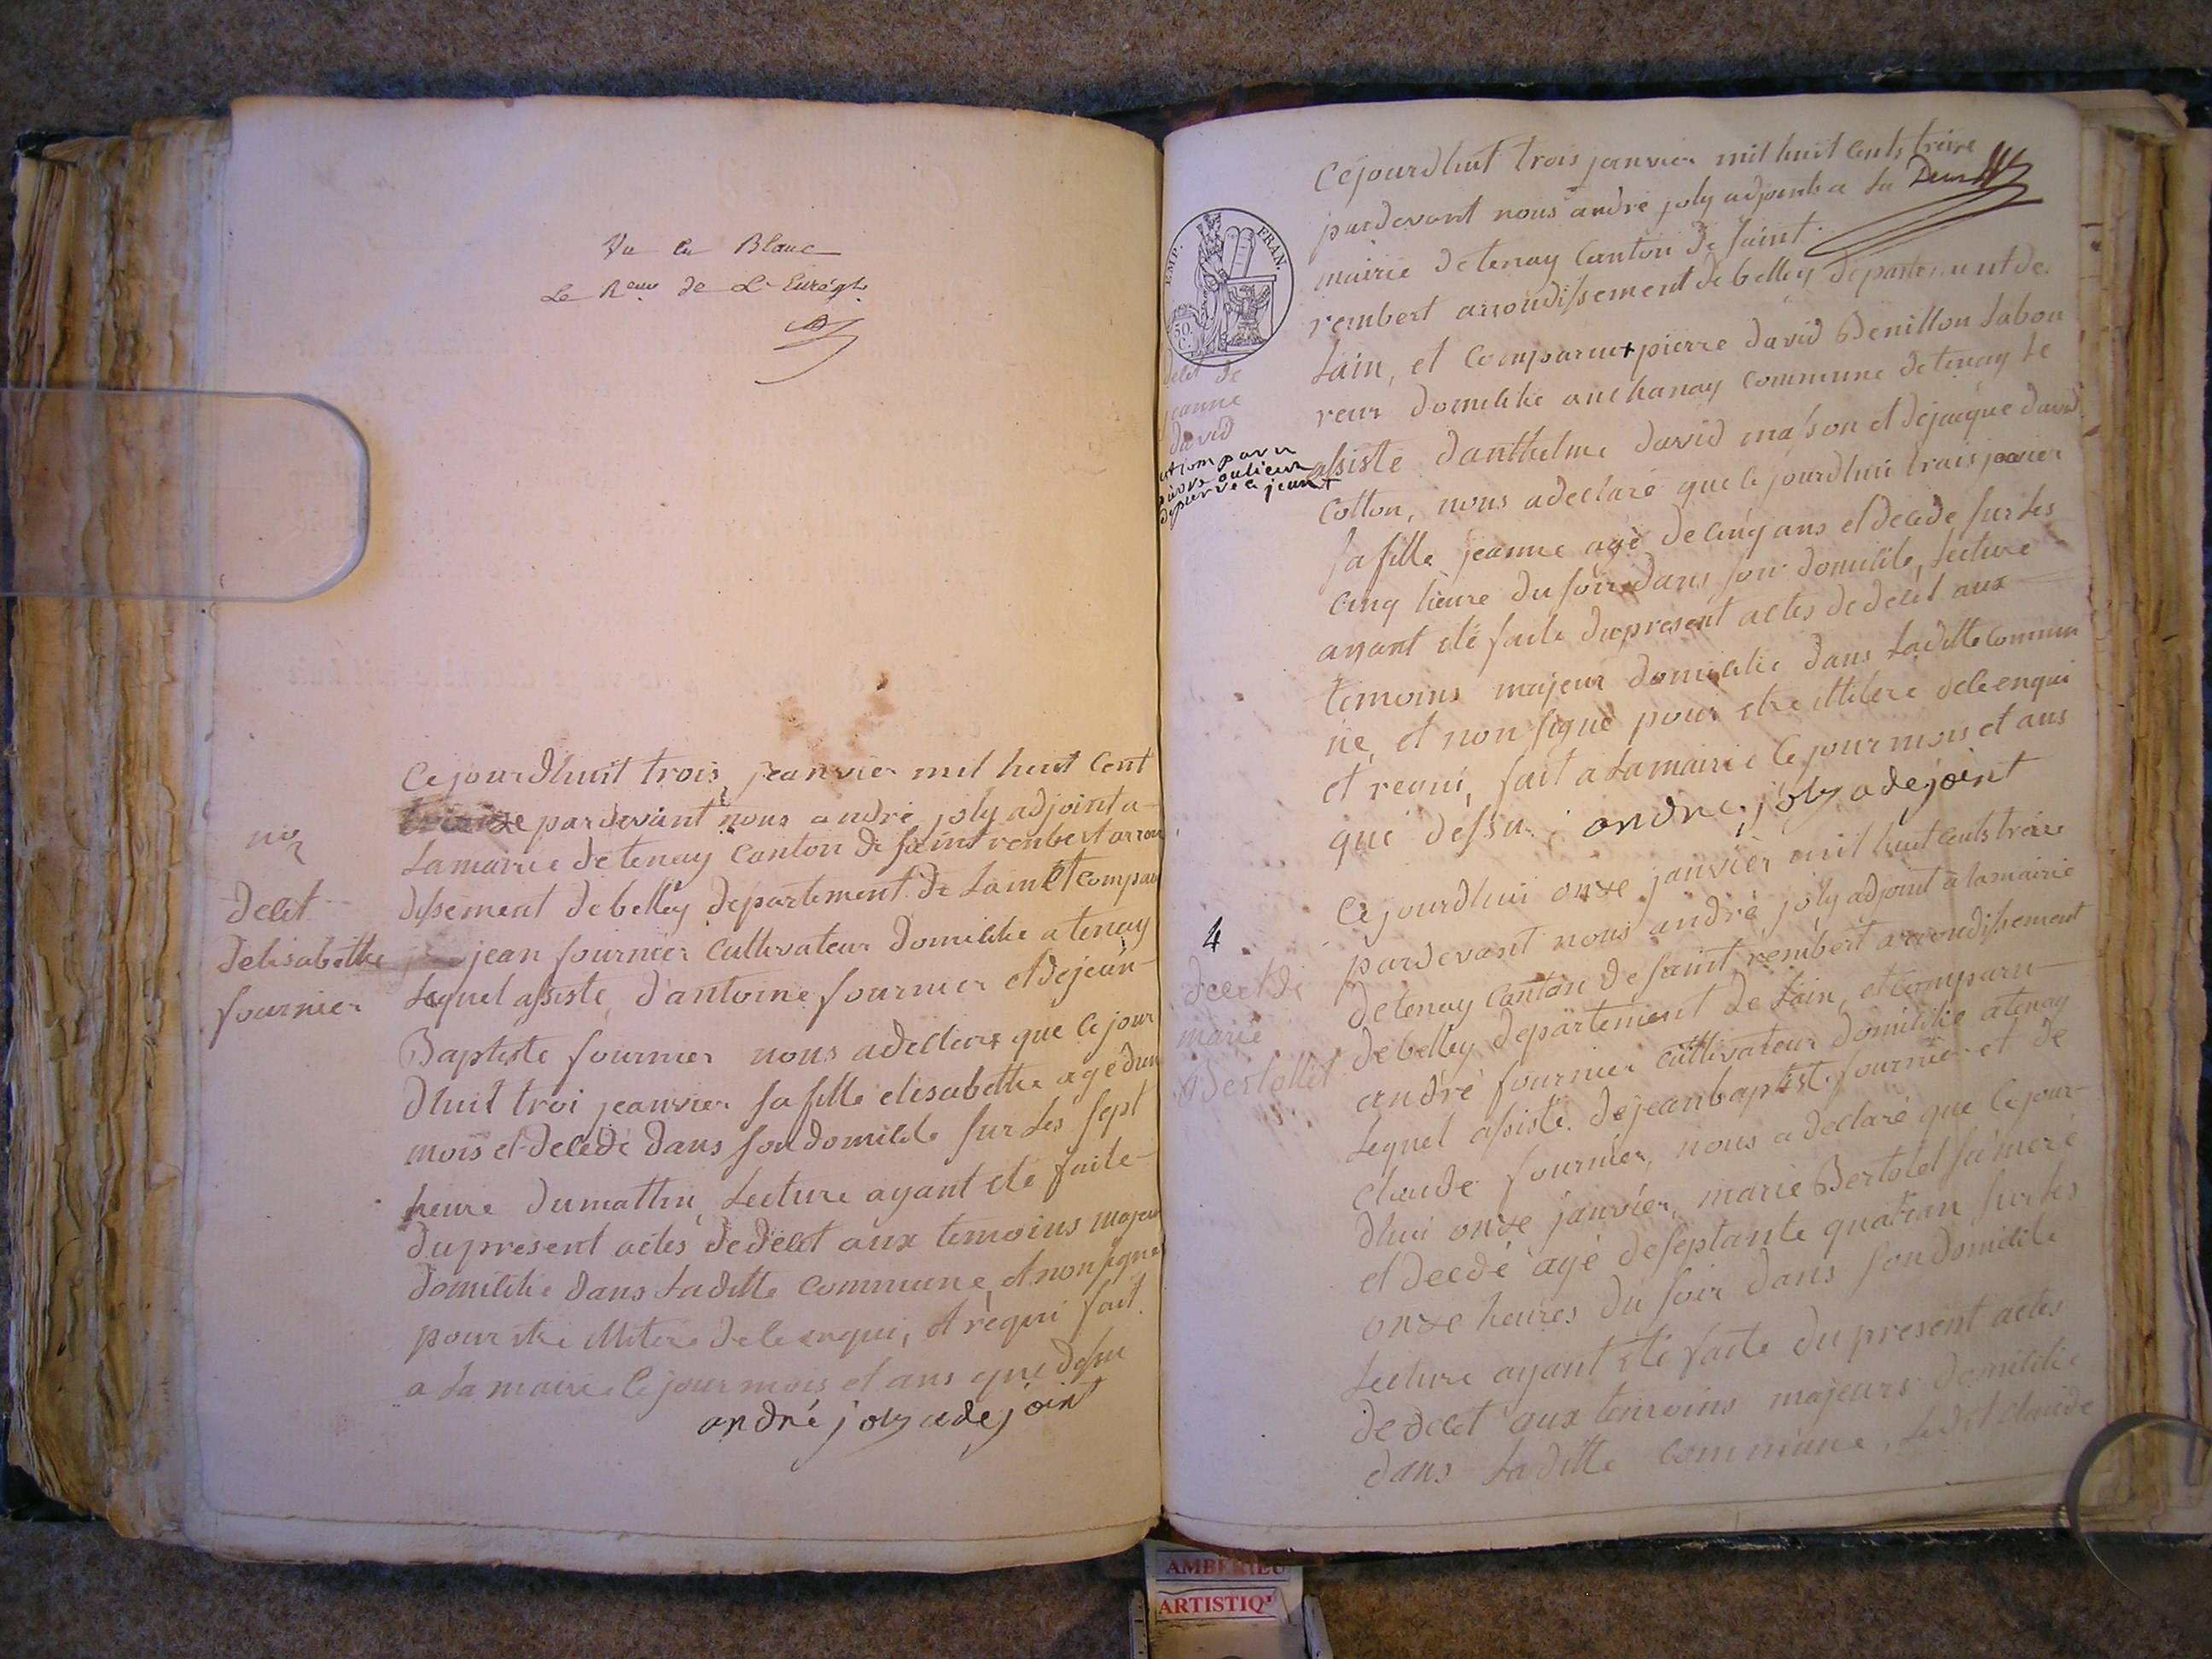 Vu en Blanc
Le R.eur de L'Enregt.
Cejourdhuit trois jeanvier mil huit Cent
treize pardevant nous andré joly adjoint a
La mairie detenay Canton de Saint rembert arron
dissement debelley departement de Lain Et compau
jean fournier Cultivateur domicilié a tenay
Lequel assisté, dantoine fournier et dejean
Baptiste fournier nous adeclare que Cejour
dhuit troi jeanvier sa fille elisabethe agé dun
mois et decedé dans son domicile sur Les sept
heure dumattin, Lecture ayant eté faite
dupresent actes dedecet aux temoins majeur
domicilié dans Laditte Commune, et non signe
pour etre illitere dele enqui, et requi fait
a La mairie le jour mois et ans que dessu
andré joly adejoint
no 2
decet
delisabethe
fournier
Cejourdhuit trois janvier mil huit Cents treize
pardevant nous andré joly adjoint a La
mairie detenay Canton de Saint
rembert arrondissement de belley departement de
Lain, et Comparut + pierre david Benillon Labou
reur domicilié auchanay Commune detenay Le
assisté danthelme david masson et dejacque david
Cotton, nous adeclaré que le jourdhui trois janvier
sa fille jeanne agé de cinq ans et decede sur Les
cinq heure du soir dans son domicile, Lecture
ayant eté faite dupresent actes de decet aux
temoins majeur domicilié dans Laditte Commun
ne, et non signé pour etre illitere dele enqui
et requi, fait a Lamairie le jour mois et ans
que dessu. andre joly adejoint
EMP. FRAN.
50 C.
decet de
jeanne
david
pierre aulieux
de pierre a jean +
Cejourdhui onze janvier mil huit Cents treize
pardevant nous andré joly adjoint a lamairie
detenay Canton de Saint rembert arrondissement
debelley departement de Lain, et Comparu
andré fournier Cultivateur domicilié atenay
Lequel assisté dejeanbaptiste fournier et de
Claude fournier, nous a declaré que Cejour
dhui onze janvier, marie Bertolet sa mere
et decdé agé deseptante quatran sur Les
onze heures du soir dans son domicile
Lecture ayant eté faite du present actes
de decet aux temoins majeurs domicilié
dans Laditte Commune, Ledit Claude
4
decet de
marie
Bertollet
AMBERIEU
ARTISTIQ'